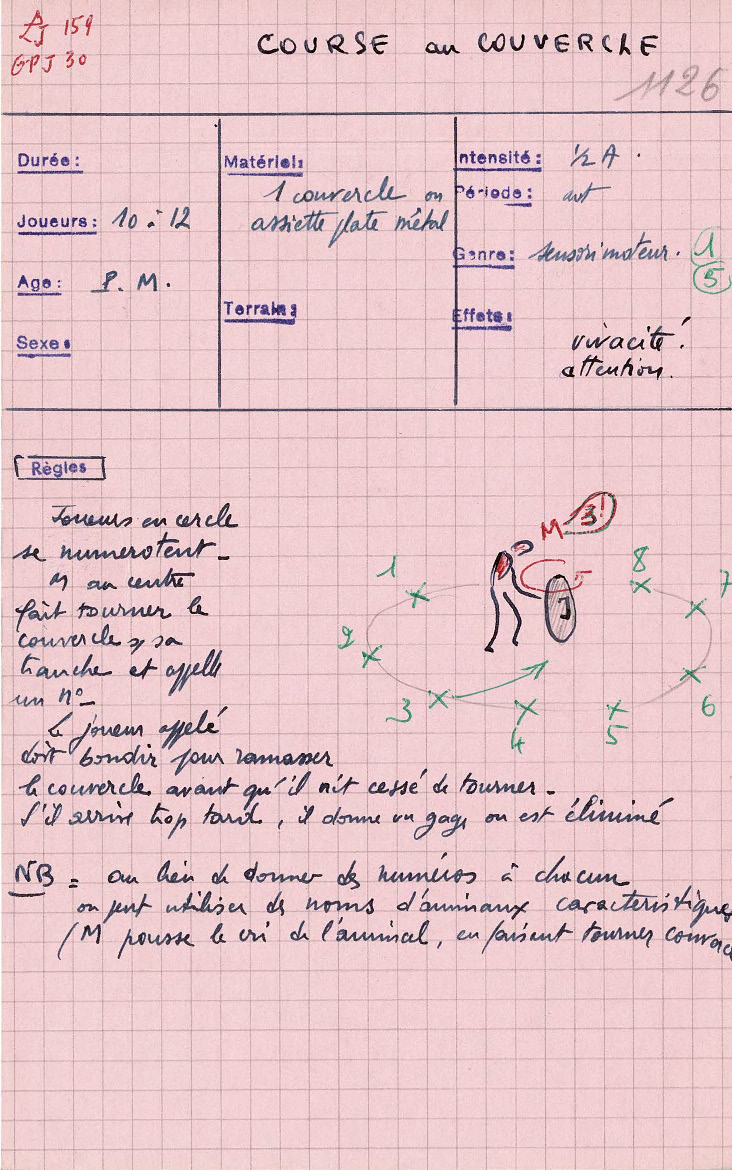 LJ 159
GPJ 30
COURSE au COUVERCLE
1126
Durée:
Joueurs: 10 à 12
Age: P. M.
Sexe:
Matériel:
1 couvercle ou
assiette plate métal
Terrain:
Intensité: 1/2 A.
Période:
Genre: sensori moteur. 1
5
Effets:
vivacité!
attention.
Règles
Joueurs en cercle
se numerotent_
M au centre
fait tourner le
couvercle sa
tranche et appelle
un n°_
Le joueur appelé
doit bondir pour ramasser
le couvercle avant qu'il ait cessé de tourner_
S'il arrive trop tard, il donne un gage ou est éliminé
M 3!
1
2
3
4
5
6
7
8
NB = au lieu de donner des numéros à chacun
on peut utiliser des noms d'animaux caracteristiques
(M pousse le cri de l'animal, en faisant tourner couverc